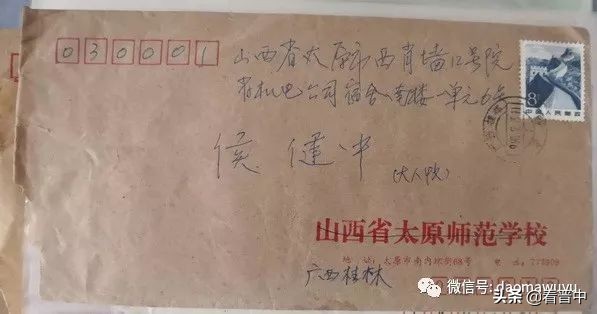 030001
山西省太原市西肖墙12号院
省机电公司宿舍南楼一单元6号
侯健中
8
中国人民邮政
山西省太原师范学校
地址:太原市南内环街68号 电话:
广西桂林
微信号: daomawuyu
头条 @看晋中